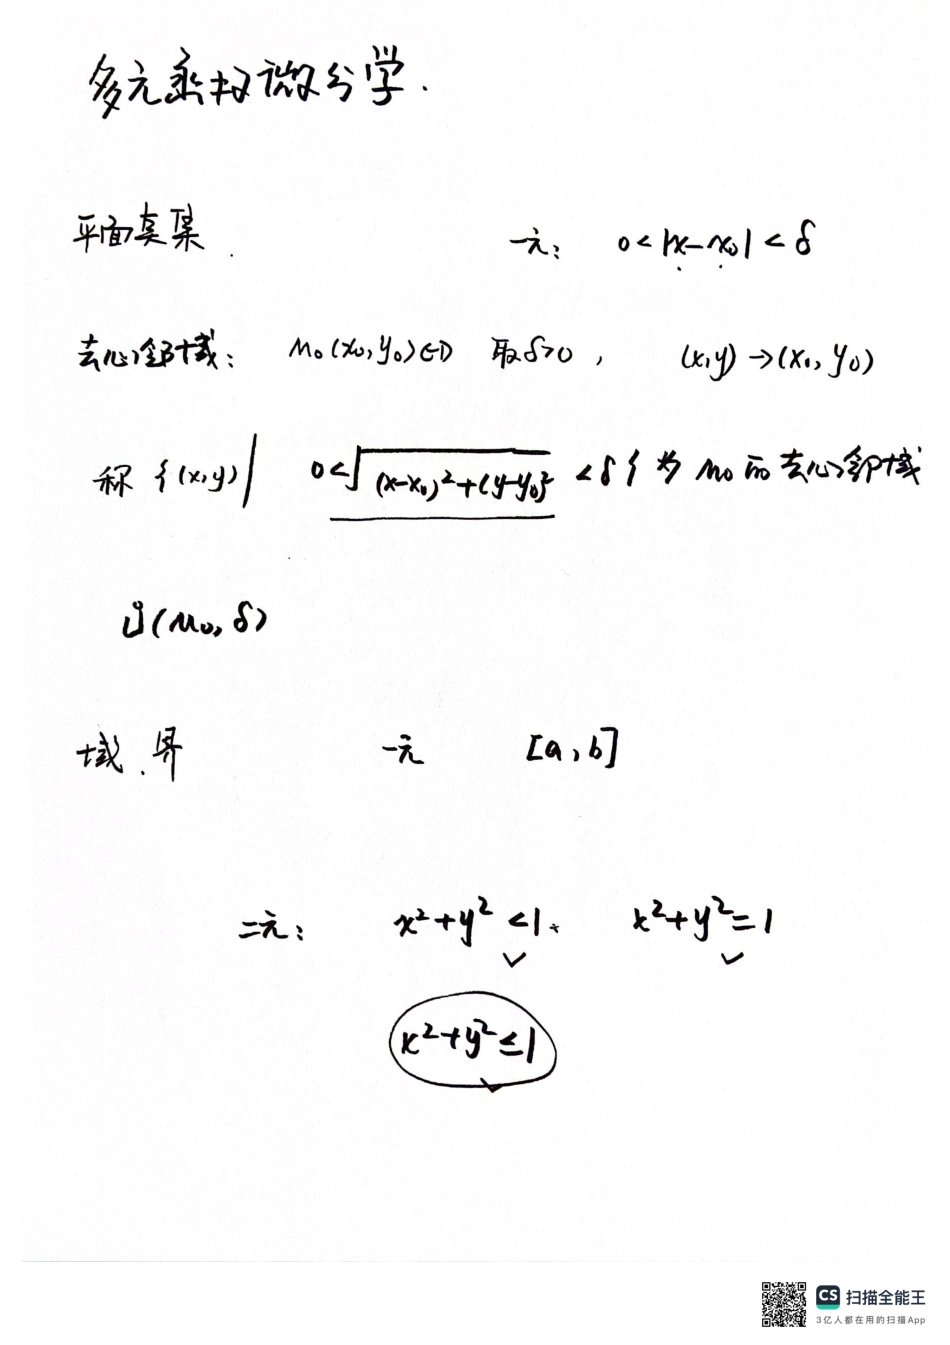 多元函数微分学.
平面点集. 一元: 0<|x-x₀|<δ
去心邻域: M₀(x₀,y₀)∈D 取δ>0, (x,y)→(x₀,y₀)
称 {(x,y)| 0<√((x-x₀)²+(y-y₀)²) <δ} 为 M₀ 的去心邻域
Ů(M₀,δ)
域.界 一元 [a,b]
二元: x²+y²<1. x²+y²=1
x²+y²≤1
CS 扫描全能王
3亿人都在用的扫描App